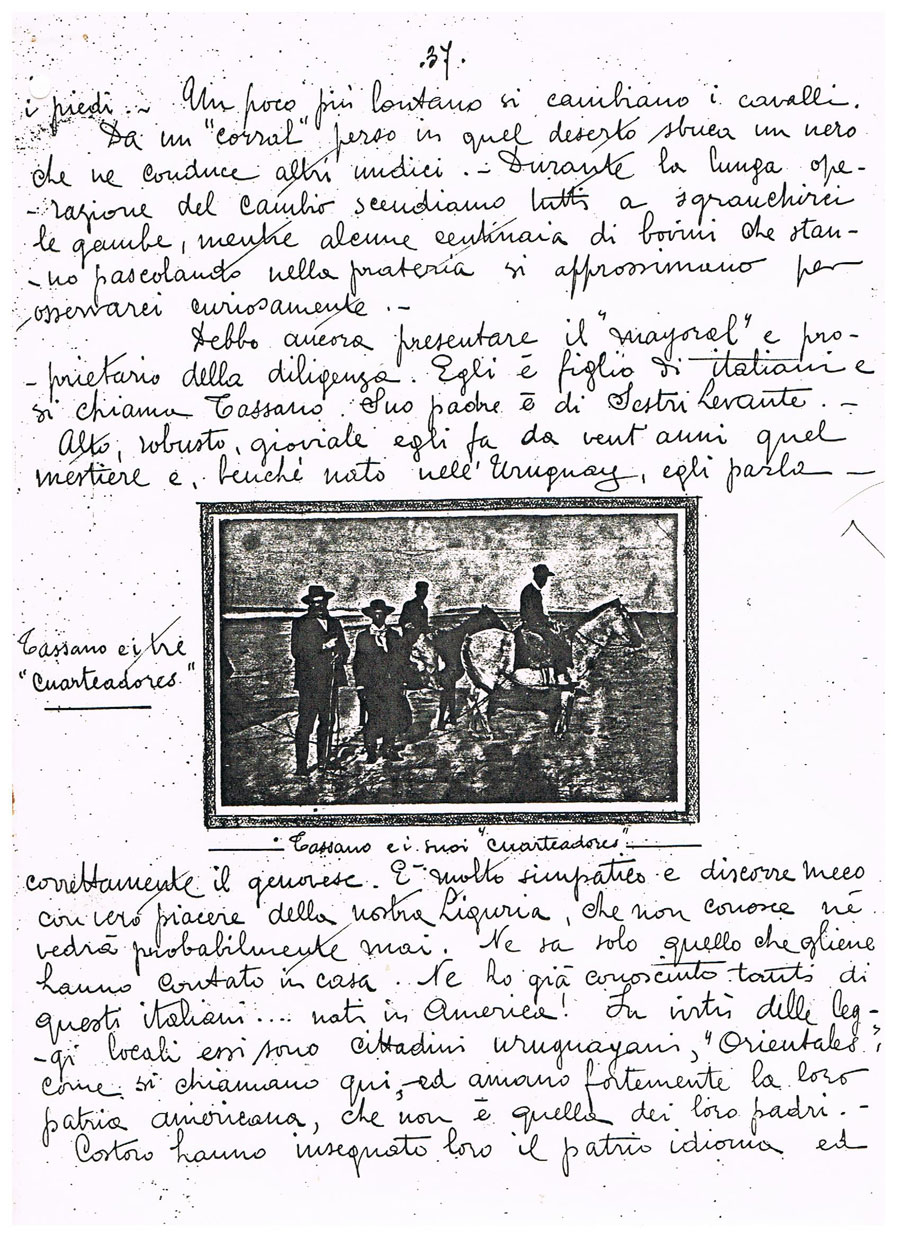 .37.
i piedi .- Un poco più lontano si cambiano i cavalli.
Da un "corral" perso in quel deserto sbuca un nero
che ne conduce altri undici .- Durante la lunga ope-
-razione del cambio scendiamo tutti a sgranchirci
le gambe, mentre alcune centinaia di bovini che stan-
-no pascolando nella prateria si approssimano per
osservarci curiosamente .-
Debbo ancora presentare il "mayoral" e pro-
-prietario della diligenza. Egli è figlio di italiani e
si chiama Tassano. Suo padre è di Sestri Levante. -
Alto, robusto, gioviale egli fa da vent'anni quel
mestiere e, benché nato nell'Uruguay, egli parla -
Tassano e i tre
"cuarteadores"
Tassano e i suoi "cuarteadores"
correttamente il genovese. È molto simpatico e discorre meco
con vero piacere della nostra Liguria, che non conosce nè
vedrà probabilmente mai. Ne sa solo quello che gliene
hanno contato in casa. Ne ho già conosciuto tanti di
questi italiani .... nati in America! In virtù delle leg-
-gi locali essi sono cittadini uruguayani, "Orientales",
come si chiamano qui, ed amano fortemente la loro
patria americana, che non è quella dei loro padri. -
Costoro hanno insegnato loro il patrio idioma ed